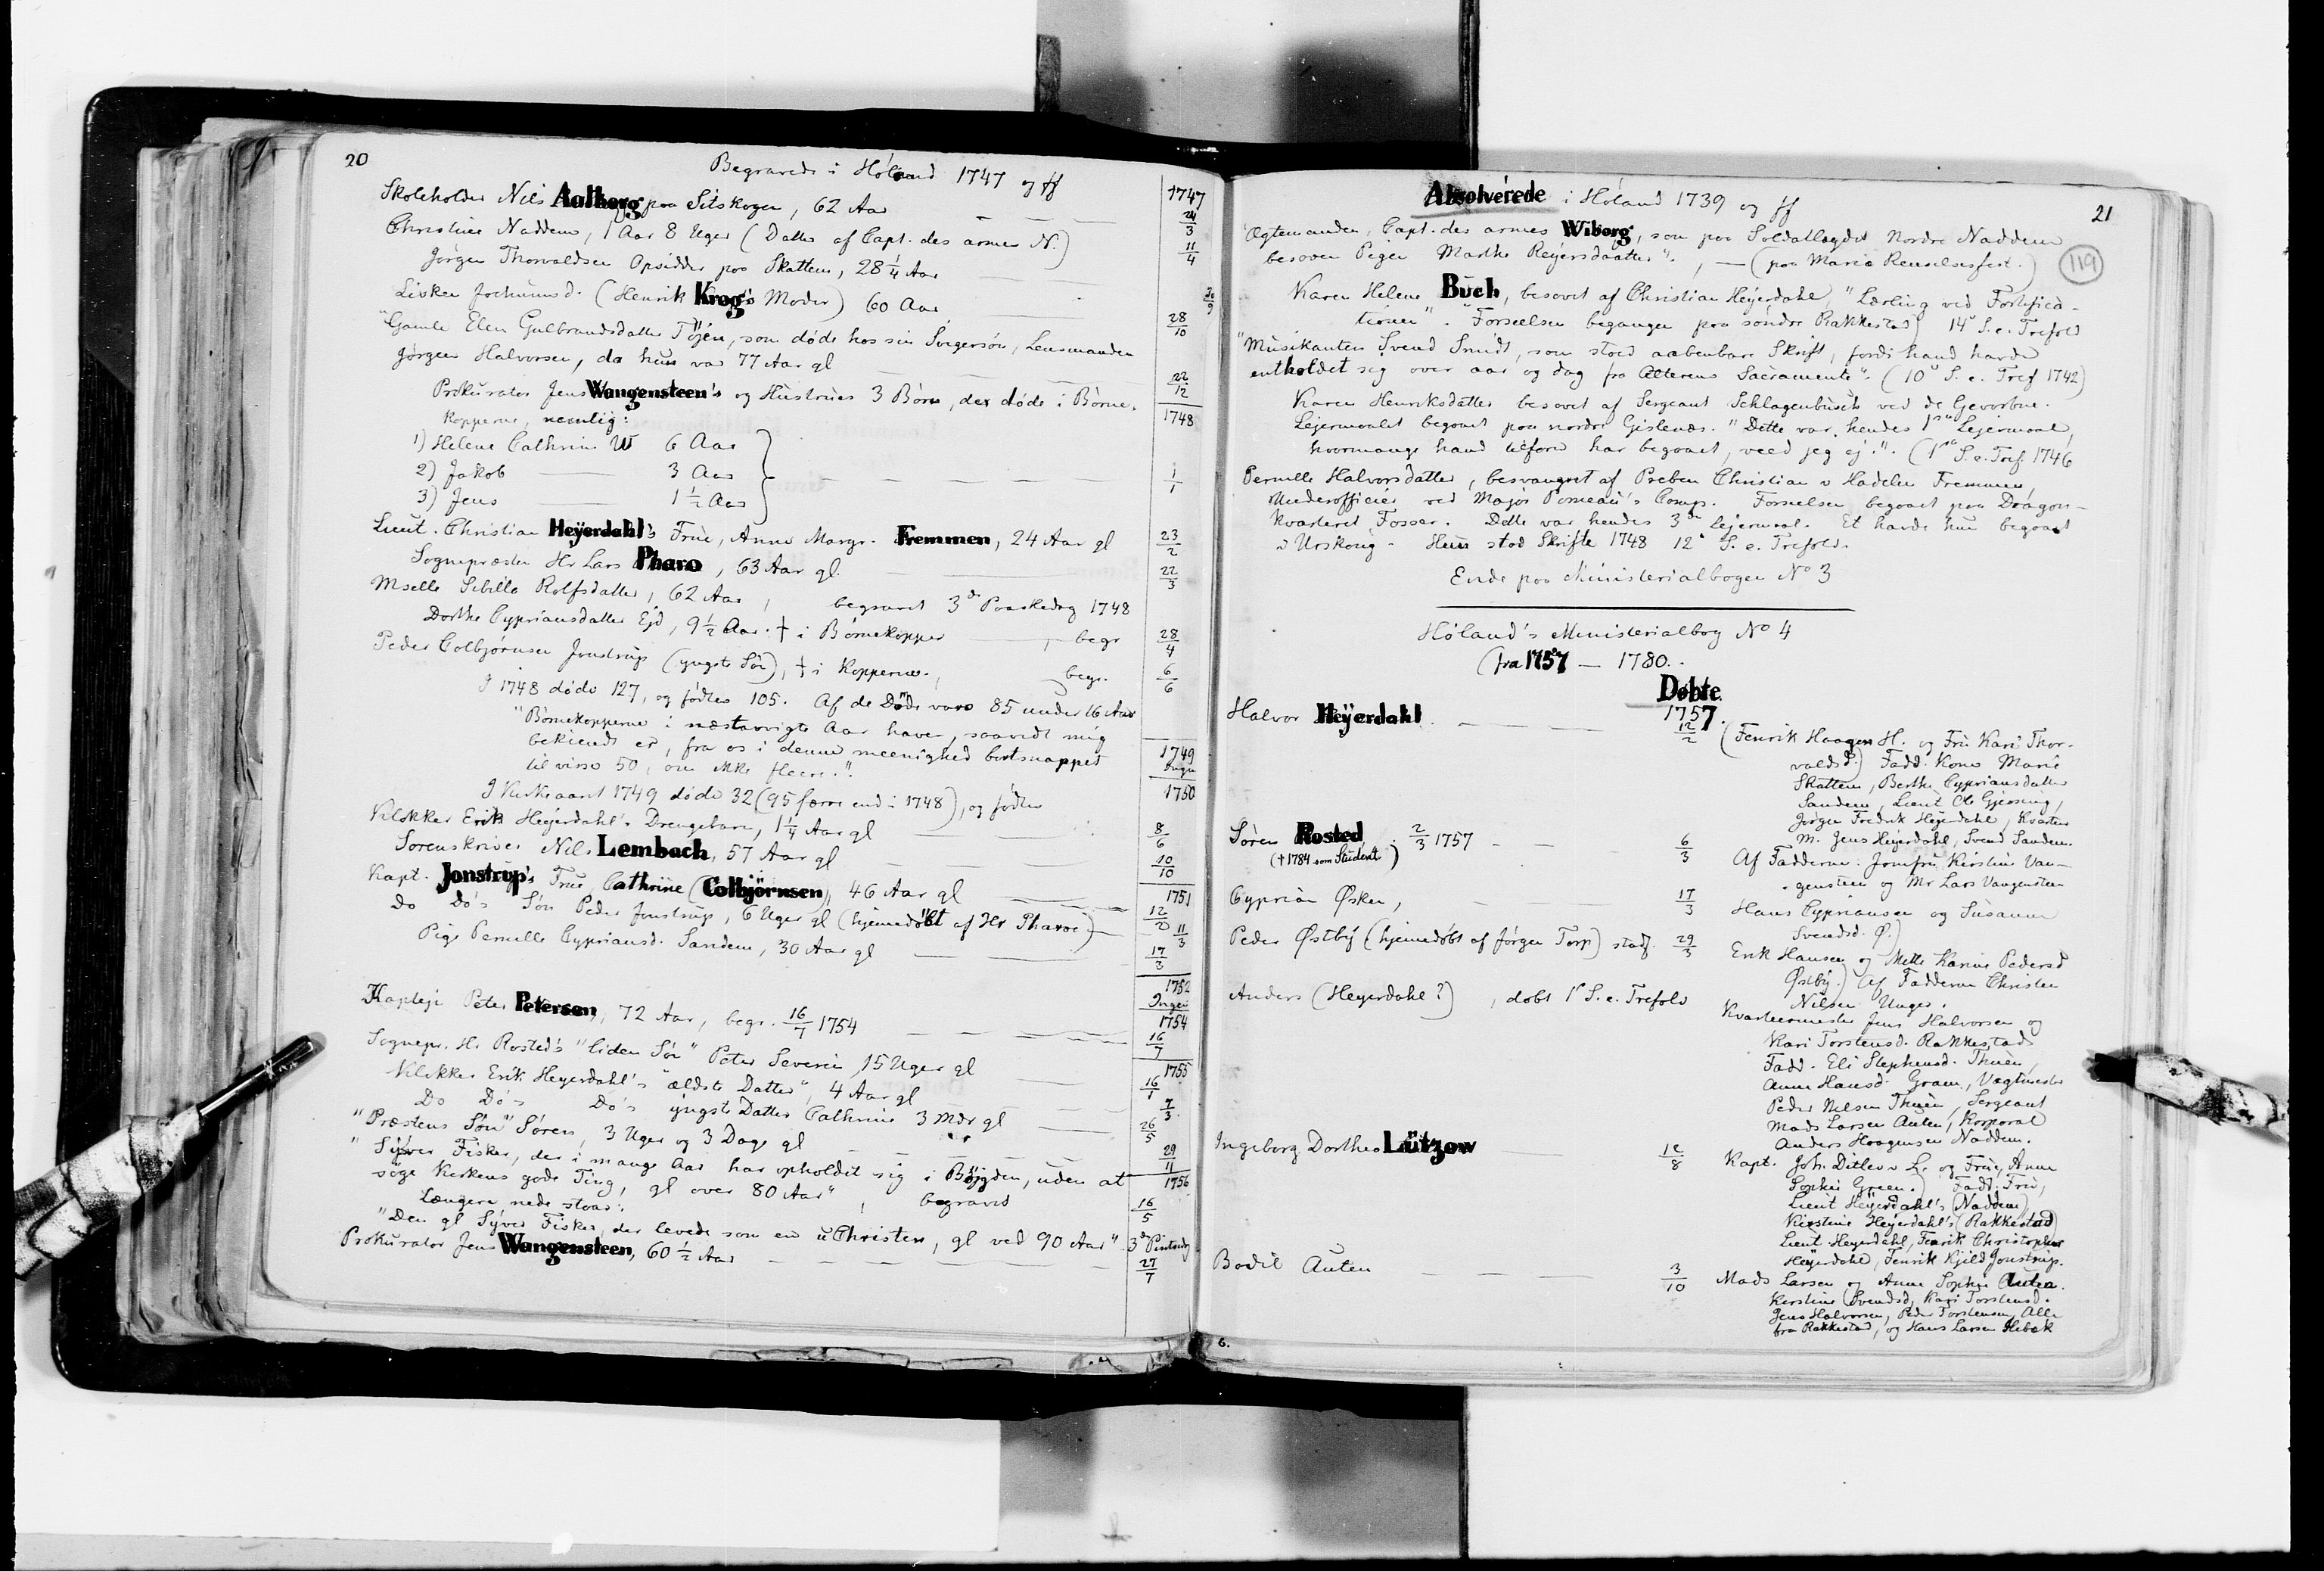 20
Begravede i Höland 1747 og ff
1747
Skoleholder Nils Aalberg paa Sitskogen, 62 Aar — — — 24/3
Christine Naddum, 1 Aar 8 Uger (Datter af Capt. des armes N.) 11/4
Jörgen Thorvaldsen Opsidder paa Skattum, 28 1/4 Aar —
Lisken Jochumsd. (Henrik Krog's Moder) 60 Aar
"Gamle Elen Gulbrandsdatter Töjen, som døde hos sin Svigersön, Lensmanden 28/10
Jörgen Halvorsen, da hun var 77 Aar gl — — — 22/12
Prokurator Jens Wangensteen's og Hustrues 3 Börn, der døde i Börne-
kopperne, nemlig: 1748
1) Helene Cathrine W 6 Aar
2) Jakob — 3 Aar — — — 1/1
3) Jens — 1 1/2 Aar
Lieut. Christian Heyerdahl's Frue, Anne Margr. Fremmen, 24 Aar gl 23/2
Sognepræsten Hr Lars Pharo, 63 Aar gl. — 22/3
Mselle Sibille Rolfsdatter, 62 Aar, begravet 3de Paaskedag 1748
Dorthe Cypriansdatter Ejd, 9 1/2 Aar. † i Börnekopper — , begr 28/4
Peder Colbjørnsen Jonstrup (yngste Sön), † i Kopperne., begr. 6/6
I 1748 døde 127, og fødtes 105. Af de Døde vare 85 under 16 Aar
"Börnekopperne i næstavvigte Aar haver, saavidt mig
bekiendt er, fra os i denne meenighed bortsnappet
til visse 50, om ikke fleere." 1749 Ingen
I Kirkeaaret 1749 døde 32 (95 færre end i 1748), og fødtes 1750
Klokker Erik Heyerdahl's Drengebarn, 1 1/4 Aar gl — — 8/6
Sorenskriver Nils Lembach, 57 Aar gl — — 10/10
Kapt. Jonstrup's Frue Cathrine (Colbjörnsen), 46 Aar gl — 1751 12/2
Do Do's Sön Peder Jonstrup, 6 Uger gl (hjemmedöbt af Hr Pharoe) — 11/3
Pige Pernille Cypriansd. Sandem, 30 Aar gl — — 17/3
1752 Ingen
Kapteje Peter Petersen, 72 Aar, begr. 16/7 1754 — — — 1754 16/7
Sognepr. Hr Rosted's "liden Sön" Peter Severin 15 Uger gl 1755
Klokker Erik Heyerdahl's "ældste Datter", 4 Aar gl — 16/1
Do Do's Do's yngste Datter Cathrine 3 Mdr gl — 7/3
"Præstens Sön" Sören, 3 Uger og 3 Dage gl — — 26/5
"Syver Fisker, der i mange Aar har opholdit sig i Böjgden, uden at 29/11
söge Kirkens gode Ting, gl over 80 Aar", begraved 1756
Længere nede staar: 16/5
"Den gl Syver Fisker, der levede som en uChristen, gl ved 90 Aar" 3de Pintsedg
Prokurator Jens Wangensteen, 60 1/2 Aar — — — 27/7
21
119
Absolverede i Höland 1739 og ff
"Ægtemanden, Capt. des armes Wiborg, som paa Soldatlegdet Nordre Naddum
besover Pigen Marthe Reyersdaatter"., — (paa Mariæ Renselsesfest.)
Karen Helene Buch, besovet af Christian Heyerdahl, "Lærling ved Fortifica-
tionen". "Forseelsen begangen paa söndre Rakkestad) 14de S. e. Trefold
"Musikanten Svend Smidt, som stod aabenbare Skrift, fordi hand havde
entholdet sig over aar og dag fra Alterens Sacramente". (10de S. e. Tref 1742)
Karen Henriksdatter besovet af Sergeant Schlagenbusch ved de Gevorbne.
Lejermaalet begaaet paa nordre Gislenæs. "Dette var hendes 1ste Lejermaal,
hvormange hand tilforn har begaaet, veed jeg ej". (1ste S. e. Tref 1746
Pernille Halvorsdatter, besvangret af Preben Christian v Hadeln Fremmen,
Underofficier ved Major Pomeau's Comp. Forseelsen begaaet paa Dragon-
kvarteret Fosser. Dette var hendes 3die Lejermaal. Et havde hun begaaet
i Urskoug - Hun stod Skrifte 1748 12te S. e. Trefold.
Ende paa Ministerialbogen No 3
Höland's Ministerialbog No 4
(fra 1757 — 1780.
Døbte
1757.
Halvor Heyerdahl — — — 12/2 (Fenrik Haagen H. og Fru Kari Thor-
valdsd.) Fadd. Kone Marie
Skattum, Berthe Cypriansdatter
Sandem, Lieut Ole Gjersing,
Jörgen Fredrik Heyerdahl, Kvarter
M. Jens Heyerdahl, Svend Sandem.
Sören Rosted, f. 2/3 1757 — — 6/3 Af Fadderne: Jomfru Kirstine Van-
(† 1784 som Student) gensteen og Mr Lars Vangensteen
Cyprian Øsken, — — — 17/3 Hans Cypriansen og Susanne
Svendsd. Ø.)
Peder Østby (hjemmedöbt af Jörgen Torp) stadf. 29/3 Erik Hansen og Mette Karine Pedersd
Østby.) Af Fadderne Christen
Nilsen Unger.
Anders (Heyerdahl?), døbt 1ste S. e. Trefold Kvarteermester Jens Halvorsen og
Kari Torstensd. Rakkestad
Fadd. Eli Stephensd. Thuen,
Anne Hansd. Gram, Vagtmester
Peder Nilsen Thuen, Sergeant
Mads Larsen Auten, Korporal
Anders Haagensen Naddum.
Ingeborg Dorthea Lützow — 12/8 Kapt. Joh. Ditlev v L. og Frue Anne
Sophie Green.) Fadd: Frue,
Lieut Heyerdahl's (Naddum)
Kirstine Heyerdahl's (Rakkestad)
Lieut Heyerdahl, Fenrik Christopher
Heyerdahl, Fenrik Kjeld Jonstrup.
Bodil Auten — — — 3/10 Mads Larsen og Anne Sophie Auten.
Kirstine Svendsd, Kari Torstensd.
Jens Halvorsen, Peder Torstensen, Alle
fra Rakkestad, og Hans Larsen Hebæk
6.